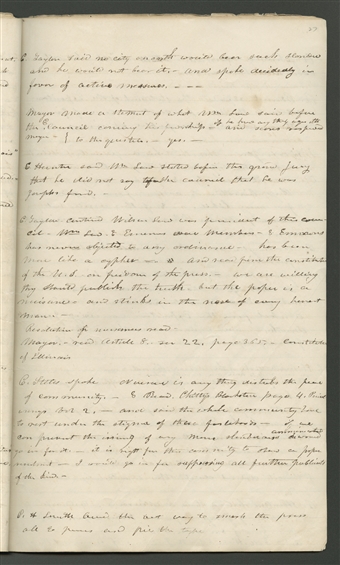 C. Taylor said no city on earth would bear such slander
and he would not bear it, and spoke decidedly in
favor of active measures. — — —
Mayor made a statement of what Wm Law said before
the council
to the question. — yes. —
C Hunter said Wm Law stated before the grand Jury
that he did not say to the council that he was
Josephs friend. —
C Taylor continued Wilson Law was president of this coun-
cil. Wm Law & Emmons were Members & Emmons
has never objected to any ordinance has been
more like a cypher and now
of the U.S. or freedom of the press. — we are willing
they should publish the truth. but the paper is a
nuisance and stinks in the nose of every honest
man. —
Resolution of nuisances read
Mayor. read Article 8. sec 22. page 365. Constitution
of Illinois
C. Stiles spoke Nuisance is any thing disturbs the peace
of community. — & Read Blackstone page 4.
Vol 2. — and said the whole community have
to rest under the stigma of these falsehoods — if we
can prevent the issuing of any more slanderous communications
go in for it — it is right for this community to show a proper
resentment — I would go in for suppressing all further publications
of the kind —
C. H Smith said the best way to smash the press
all to pieces and pie the type